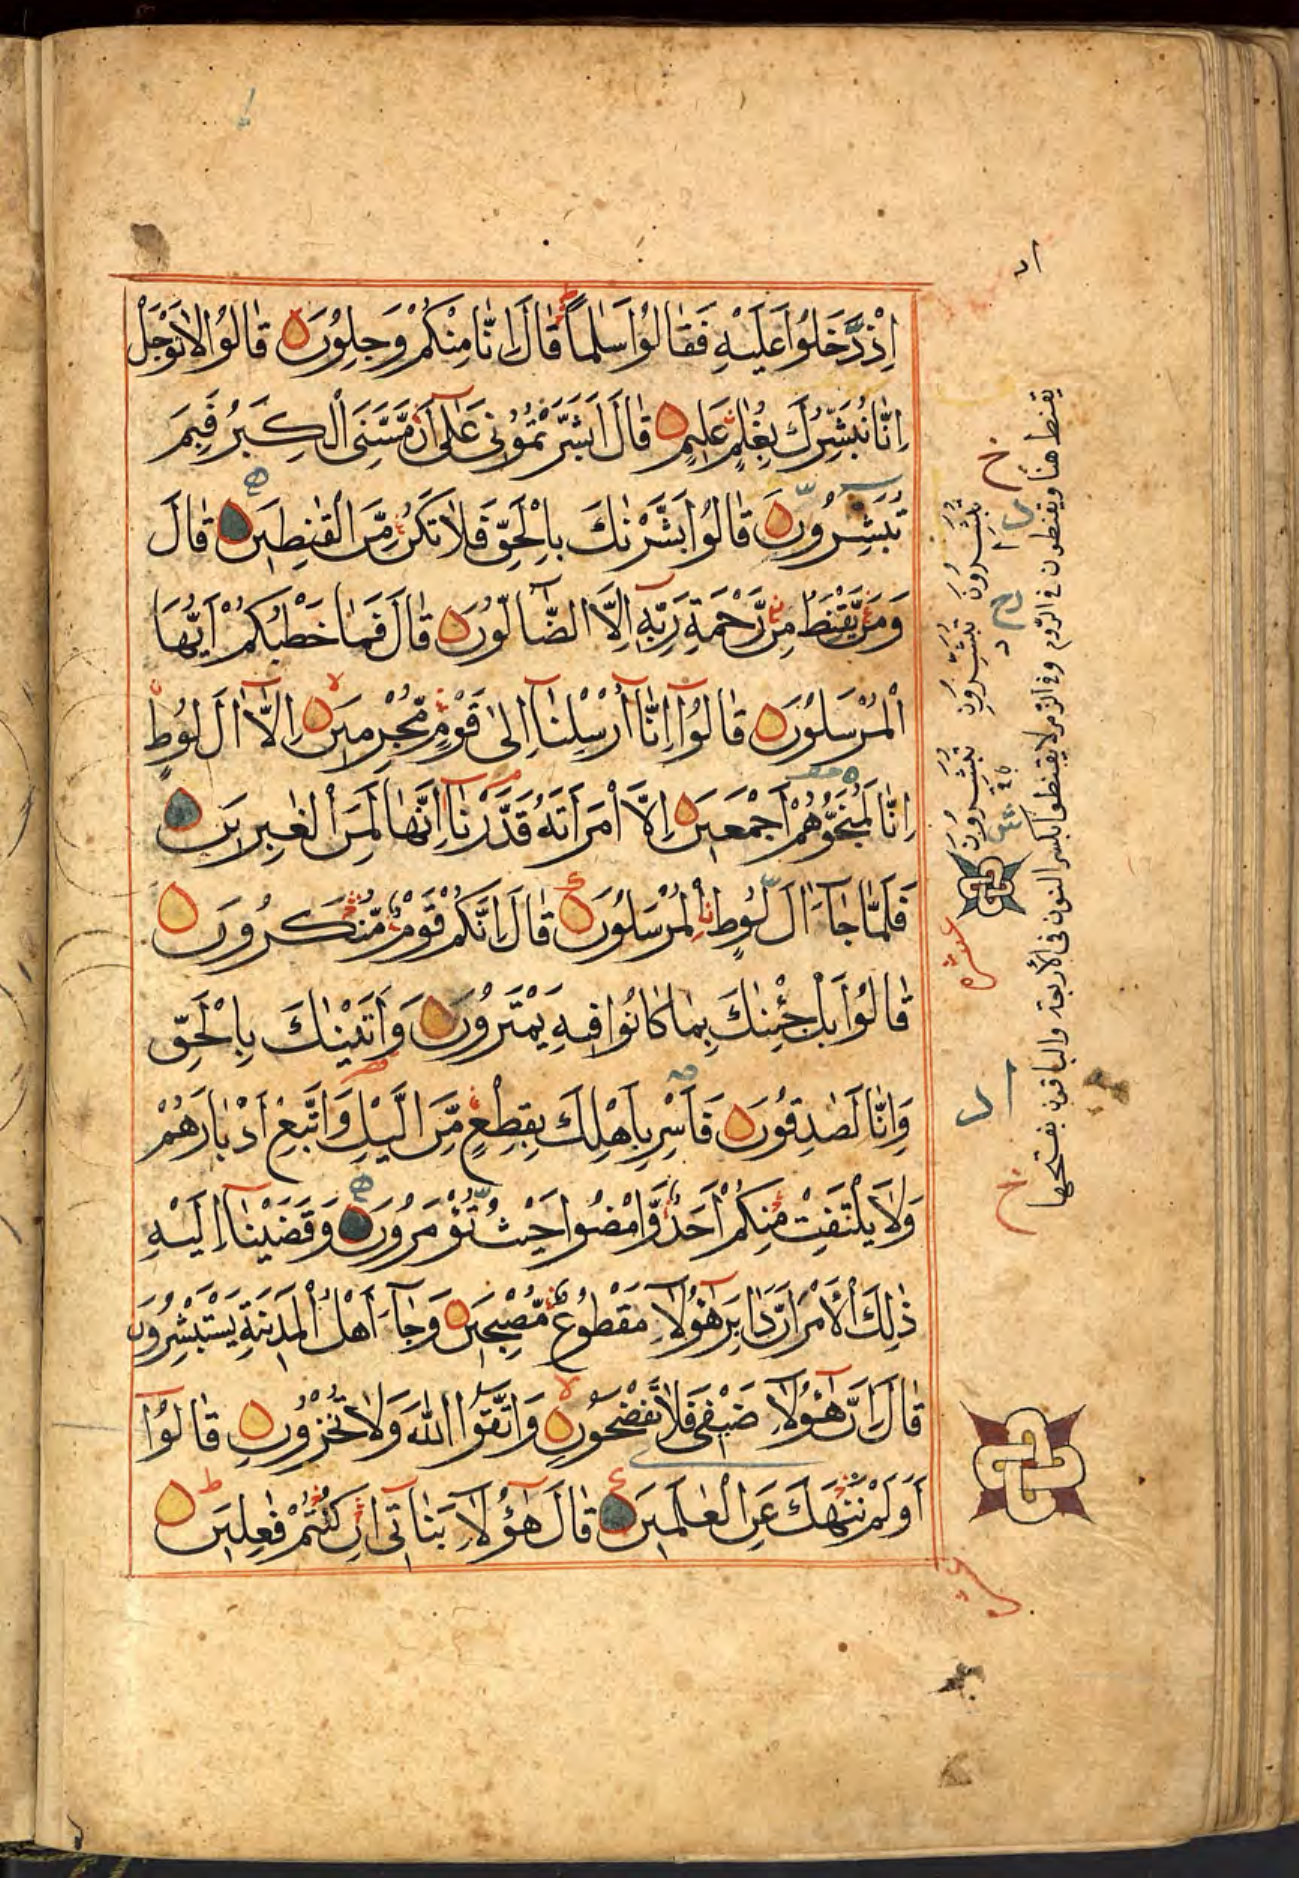 اِذْ دَّخَلُوْا عَلَيْهِ فَقَالُوْا سَلٰمًا قَالَ اِنَّا مِنْكُمْ وَجِلُوْنَ قَالُوْا لَا تَوْجَلْ
اِنَّا نُبَشِّرُكَ بِغُلٰمٍ عَلِيْمٍ قَالَ اَبَشَّرْتُمُوْنِيْ عَلٰٓى اَنْ مَّسَّنِيَ الْكِبَرُ فَبِمَ
تُبَشِّرُوْنَ قَالُوْا بَشَّرْنٰكَ بِالْحَقِّ فَلَا تَكُنْ مِّنَ الْقٰنِطِيْنَ قَالَ
وَمَنْ يَّقْنَطُ مِنْ رَّحْمَةِ رَبِّهٖٓ اِلَّا الضَّآلُّوْنَ قَالَ فَمَا خَطْبُكُمْ اَيُّهَا
الْمُرْسَلُوْنَ قَالُوْٓا اِنَّآ اُرْسِلْنَآ اِلٰى قَوْمٍ مُّجْرِمِيْنَ اِلَّآ اٰلَ لُوْطٍ
اِنَّا لَمُنَجُّوْهُمْ اَجْمَعِيْنَ اِلَّا امْرَاَتَهٗ قَدَّرْنَآ اِنَّهَا لَمِنَ الْغٰبِرِيْنَ
فَلَمَّا جَآءَ اٰلَ لُوْطٍ الْمُرْسَلُوْنَ قَالَ اِنَّكُمْ قَوْمٌ مُّنْكَرُوْنَ
قَالُوْا بَلْ جِئْنٰكَ بِمَا كَانُوْا فِيْهِ يَمْتَرُوْنَ وَاَتَيْنٰكَ بِالْحَقِّ
وَاِنَّا لَصٰدِقُوْنَ فَاَسْرِ بِاَهْلِكَ بِقِطْعٍ مِّنَ الَّيْلِ وَاتَّبِعْ اَدْبَارَهُمْ
وَلَا يَلْتَفِتْ مِنْكُمْ اَحَدٌ وَّامْضُوْا حَيْثُ تُؤْمَرُوْنَ وَقَضَيْنَآ اِلَيْهِ
ذٰلِكَ الْاَمْرَ اَنَّ دَابِرَ هٰٓؤُلَآءِ مَقْطُوْعٌ مُّصْبِحِيْنَ وَجَآءَ اَهْلُ الْمَدِيْنَةِ يَسْتَبْشِرُوْنَ
قَالَ اِنَّ هٰٓؤُلَآءِ ضَيْفِيْ فَلَا تَفْضَحُوْنِ وَاتَّقُوا اللهَ وَلَا تُخْزُوْنِ قَالُوْٓا
اَوَلَمْ نَنْهَكَ عَنِ الْعٰلَمِيْنَ قَالَ هٰٓؤُلَآءِ بَنٰتِيْٓ اِنْ كُنْتُمْ فٰعِلِيْنَ
تُبَشِّرُوْنَ تُبَشِّرُوْنِ تُبَشِّرُوْنَ
يقنط هنا ويقنطون فى الروم وفى الزمر لا تقنطوا بكسر النون فى الأربعة والباقون بفتحها
عشره